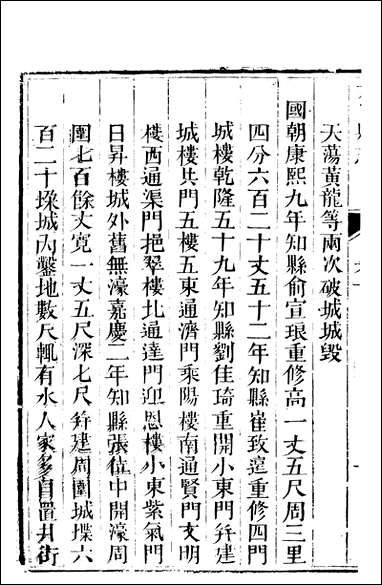 天蕩黃龍等兩次破城城毀
國朝康熙九年知縣俞宣琅重修高一丈五尺周三里
四分六百二十丈五十二年知縣崔致遠重修四門
城樓乾隆五十九年知縣劉佳琦重開小東門并建
城樓共門五樓五東通濟門乘陽樓南通賢門文明
樓西通渠門挹翠樓北通達門迎恩樓小東紫氣門
日昇樓城外舊無濠嘉慶二年知縣張位中開濠周
圍七百餘丈寬一丈五尺深七尺并建周圍城堞六
百二十垜城內鑿地數尺輒有水人家多自置井街